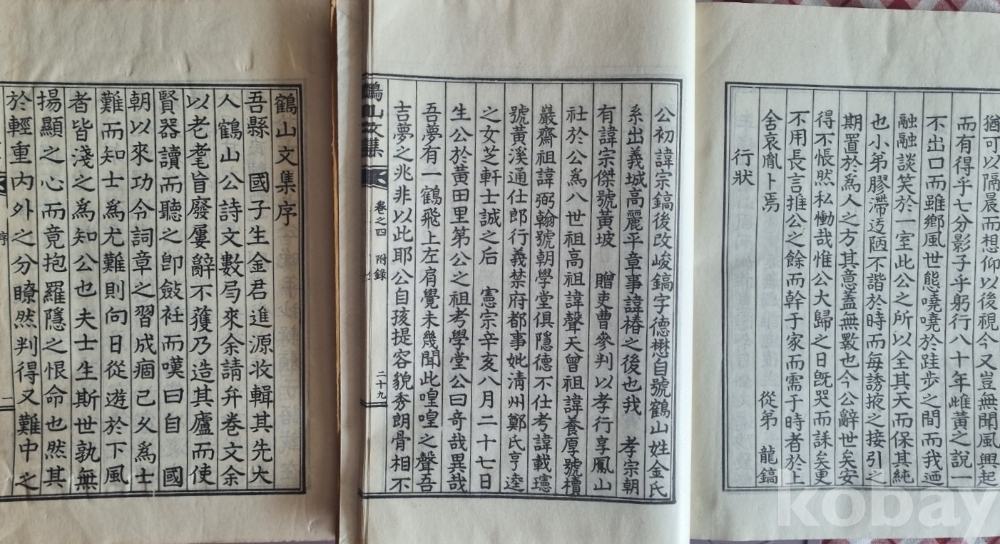 猶可以隔晨而想仰以後視今又豈無聞風興起
而有得乎七分影子乎躬行八十年雌黃之說一
不出口而雖鄉風世態嘵嘵於跬步之間而我迺
融融談笑於一室此公之所以全其天而保其純
也小弟膠滯迃陋不諧於時而每誘掖之接引之
期置於爲人之方其意蓋無斁也今公辭世矣安
得不悵然私慟哉惟公大歸之日旣器而誄矣更
不用長言推公之餘而幹于家而需于時者於上
舍哀胤卜焉 從弟 龍鎬
行狀
公初諱宗鎬後改峻鎬字德懋自號鶴山姓金氏
系出義城高麗平章事諱椿之後也我 孝宗朝
有諱宗傑號黃坡 贈吏曹參判以孝行享鳳山
社於公爲八世祖高祖諱聲天曾祖諱養厚號櫝
巖齋祖諱弼翰號朝學堂俱隱德不仕考諱載璁
號黃溪通仕郎行義禁府都事妣淸州鄭氏亨逵
之女芝軒士誠之后 憲宗辛亥八月二十七日
生公於黃田里第公之祖考學堂公曰奇哉異哉
吾夢有一鶴飛上左肩覺未幾聞此喤喤之聲吾
吉夢之兆非以此耶公自孩提容貌秀朗骨相不
鶴山文集 卷之四 附錄 二十九
鶴山文集序
吾縣 國子生金君進源收輯其先大
人鶴山公詩文數局來余請弁卷文余
以老耄旨廢屢辭不獲乃造其廬而使
賢器讀而聽之卽斂衽而嘆曰自 國
朝以來功令詞章之習成痼已久爲士
難而知士爲尤難則向日從遊於下風
者皆淺之爲知公也夫士生斯世孰無
揚顯之心而竟抱羅隱之恨命也然其
於輕重內外之分瞭然判得又難中之
序
二
kobay